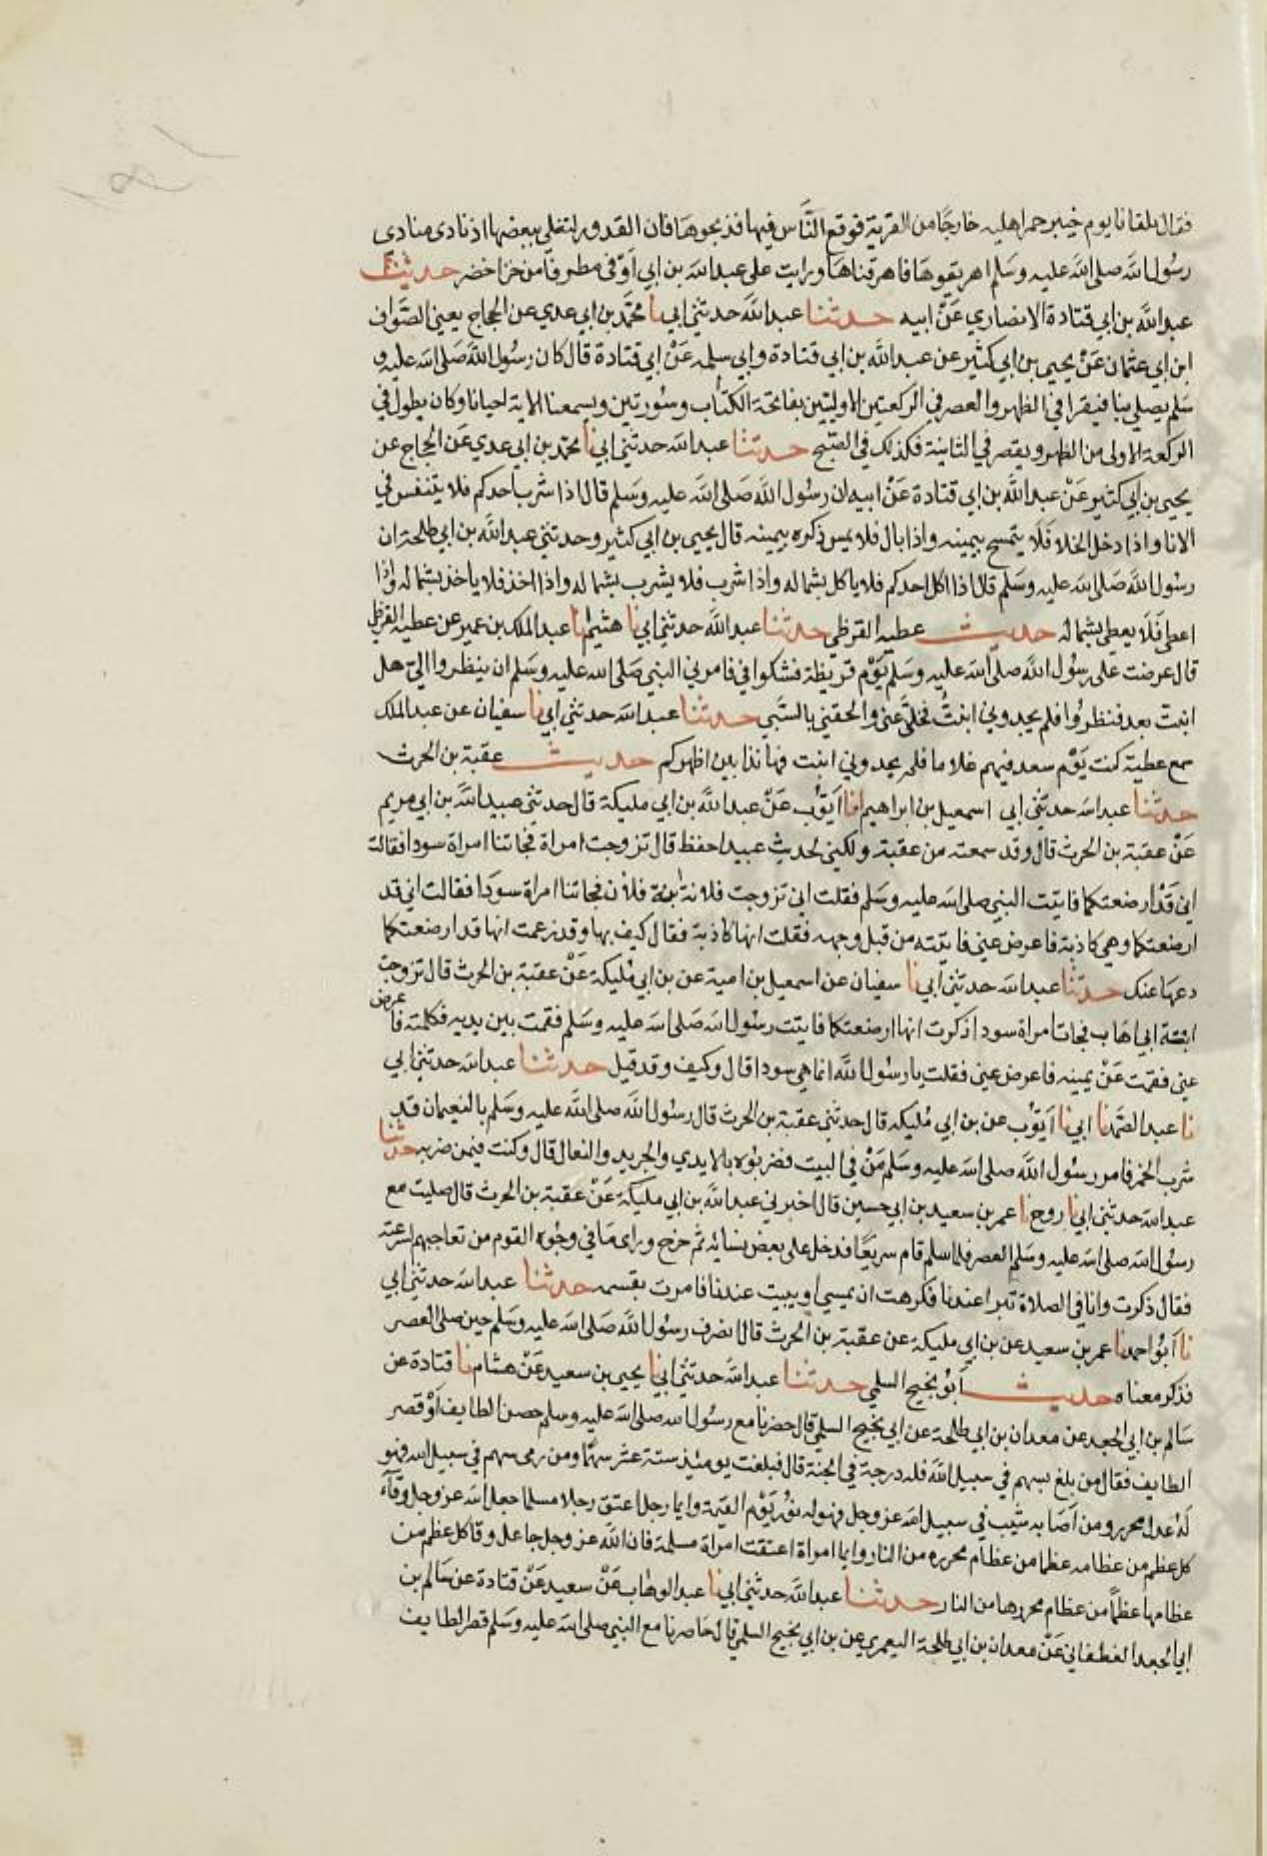 فقال تلقانا يوم خيبر حمر اهليه خارجًا من القرية فوقع النَّاس فيها فذبحوها فان القدور لتغلي ببعضها اذ نادى منادى
رسُول الله صلى الله عليه وسَلم اهريقوها فاهرقناها ورايت على عبد الله بن ابي اوفى مطرفا من خز اخضر حديث
عبد الله بن ابي قتادة الانصاري عَنْ ابيه حدثنا عبد الله حدثني ابي نا محمَّد بن ابي عدي عن الحجاج يعني الصَّواف
ابن ابي عثمان عَنْ يحيى بن ابي كثير عن عبد الله بن ابي قتادة وابي سلمه عَنْ ابي قتادة قال كان رسُول الله صَلى الله عليه و
سَلم يصلي بنا فيقرا في الظهر والعصر في الركعتين الاوليين بفاتحة الكتاب وسُورتين ويسمعنا الاية احيانا وكان يطول في
الركعة الاولى من الظهر ويقصر في الثانية فكذلك في الصّبح حدثنا عبد الله حدثني ابي نا محمد بن ابي عدي عَن الحجاج عن
يحيى بن ابي كثير عَنْ عبد الله بن ابي قتادة عَنْ ابيه ان رسُول الله صَلى الله عليه وسَلم قال اذا شرب احدكم فلا يتنفس في
الانا واذا دخل الخلا فَلَا يتمسح بيمينه واذا بال فلا يمس ذكره بيمينه قال يحيى بن ابي كثير وحدثني عبد الله بن ابي طلحة ان
رسُول الله صَلى الله عليه وسَلم قال اذا اكل احدكم فلا ياكل بشماله واذا شرب فلا يشرب بشماله واذا اخذ فلا ياخذ بشماله واذا
اعطى فَلَا يعطي بشماله حديث عطيه القرظي حدثنا عبد الله حدثني ابي نا هشيم انا عبد الملك بن عمير عن عطيه القرظي
قال عرضت على رسُول الله صلى الله عليه وسَلم يَوْم قريظة فشكوا في فامر بي النبي صَلى الله عليه وسَلم ان ينظروا الي هل
انبت بعد فنظرُوا فلم يجدوني انبتُّ فخلَّى عنى والحقني بالسَّبي حدثنا عبد الله حدثني ابي نا سفيان عن عبد الملك
سمع عطية كنت يَوْم سعد فيهم غلاما فلم يجدوني انبت فها نذا بين اظهركم حديث عقبة بن الحرث
حدثنا عبد الله حدثني ابي اسمعيل بن ابراهيم انا ايَّوب عَنْ عبد الله بن ابي مليكة قال حدثني عبيد الله بن ابي مريم
عَنْ عقبة بن الحرث قال وقد سمعته من عقبة ولكني لحديث عبيد احفظ قال تزوجت امراة فجاتنا امراة سودا فقالت
اني قَدْ ارضعتكما فاتيت النبي صلى الله عليه وسَلم فقلت اني تزوجت فلانة ابنة فلان فجاتنا امراة سودا فقالت اني قد
ارضعتكما وهي كاذبة فاعرض عني فاتيته من قبل وجهه فقلت انها كاذبة فقال كيف بها وقد زعمت انها قد ارضعتكما
دعها عنك حدثنا عبد الله حدثني ابي نا سفيان عن اسمعيل بن امية عن بن ابي مُليكة عَنْ عقبة بن الحرث قال تزوجت
ابنة ابي اهَاب فجات امراة سودا ذكرت انها ارضعتكما فاتيت رسُول الله صَلى الله عليه وسَلم فقمت بين يديه فكلمته فاعرض
عني فقمت عَنْ يمينه فاعرض عني فقلت يا رسُول الله انما هي سودا قال وكيف وقد قيل حدثنا عبد الله حدثني ابي
نا عبد الصَّمد نا ابي نا ايَّوب عن بن ابي مُليكه قال حدثني عقبة بن الحرث قال رسُول الله صلى الله عليه وسَلم بالنعيمان قد
شرب الخمر فامر رسُول الله صلى الله عليه وسَلم مَنْ في البيت فضربُوه بالايدي والجريد والنعال قال وكنت فيمن ضربه حدثنا
عبد الله حدثني ابي نا روح نا عمر بن سعيد بن ابي حسين قال اخبرني عبد الله بن ابي مليكة عَنْ عقبة بن الحرث قال صليت مع
رسُول الله صلى الله عليه وسَلم العصر فلما سلم قام سريعًا فدخل على بعض نسائه ثم خرج وراى مَا في وجُوه القوم من تعاجبهم لسرعته
فقال ذكرت وانا في الصلاة تبرا عندنا فكرهت ان يمسي او يبيت عندنا فامرت بقسمه حدثنا عبد الله حدثني ابي
نا ابَوُ احمد نا عمر بن سعيد عن بن ابي مليكة عن عقبة بن الحرث قال انصرف رسُول الله صَلى الله عليه وسَلم حين صلى العصر
فذكر معناه حديث ابَوُ نجيح السلمي حدثنا عبد الله حدثني ابي نا يحيى بن سعيد عَنْ هشام نا قتادة عن
سَالم بن ابي الجعد عن معدان بن ابي طلحة عن ابي نجيح السلمي قال حضرنا مع رسُول الله صلى الله عليه وسلم حصن الطايف اوْ قصر
الطايف فقال من بلغ بسهم في سبيل الله فله درجة في الجنة قال فبلغت يومئذ ستة عشر سهمًا ومن رمى سهم في سبيل الله فهو
لَهُ عدل محرر ومن اَصَابه شيب في سبيل الله عز وجل فهو له نوُر يَوْم القيمة وايما رجل اعتق رجلا مسلما جعل الله عز وجل وقاء
كل عظم من عظامه عظما من عظام محرره من النار وايما امراة اعتقت امراة مسلمة فان الله عز وجل جاعل وقا كل عظم من
عظامها عظماً من عظام محررها من النار حدثنا عبد الله حدثني ابي نا عبد الوهاب عَنْ سعيد عَنْ قتادة عن سَالم بن
ابي الجعد الغطفاني عَنْ معدان بن ابي طلحة اليعمري عن بن ابي نجيح السلمي قال حَاصرنا مع النبي صلى الله عليه وسَلم قصر الطايف